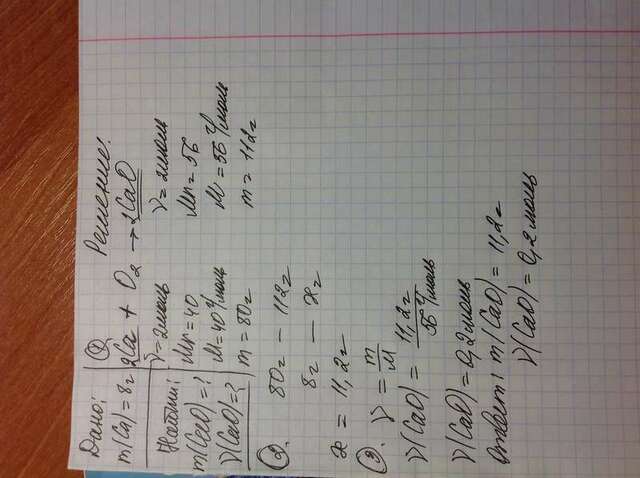 Дано:
m(Ca) = 8г
Найти:
m(CaO) = ?
ν(CaO) = ?
① Решение:
2Ca + O₂ → 2CaO
ν = 2моль ν = 2моль
Mr = 40 Mr = 56
M = 40 г/моль M = 56 г/моль
m = 80г m = 112г
②. 80г — 112г
8г — xг
x = 11,2г
③. ν = m/M
ν(CaO) = 11,2г / 56 г/моль
ν(CaO) = 0,2моль
Ответ: m(CaO) = 11,2г
ν(CaO) = 0,2 моль